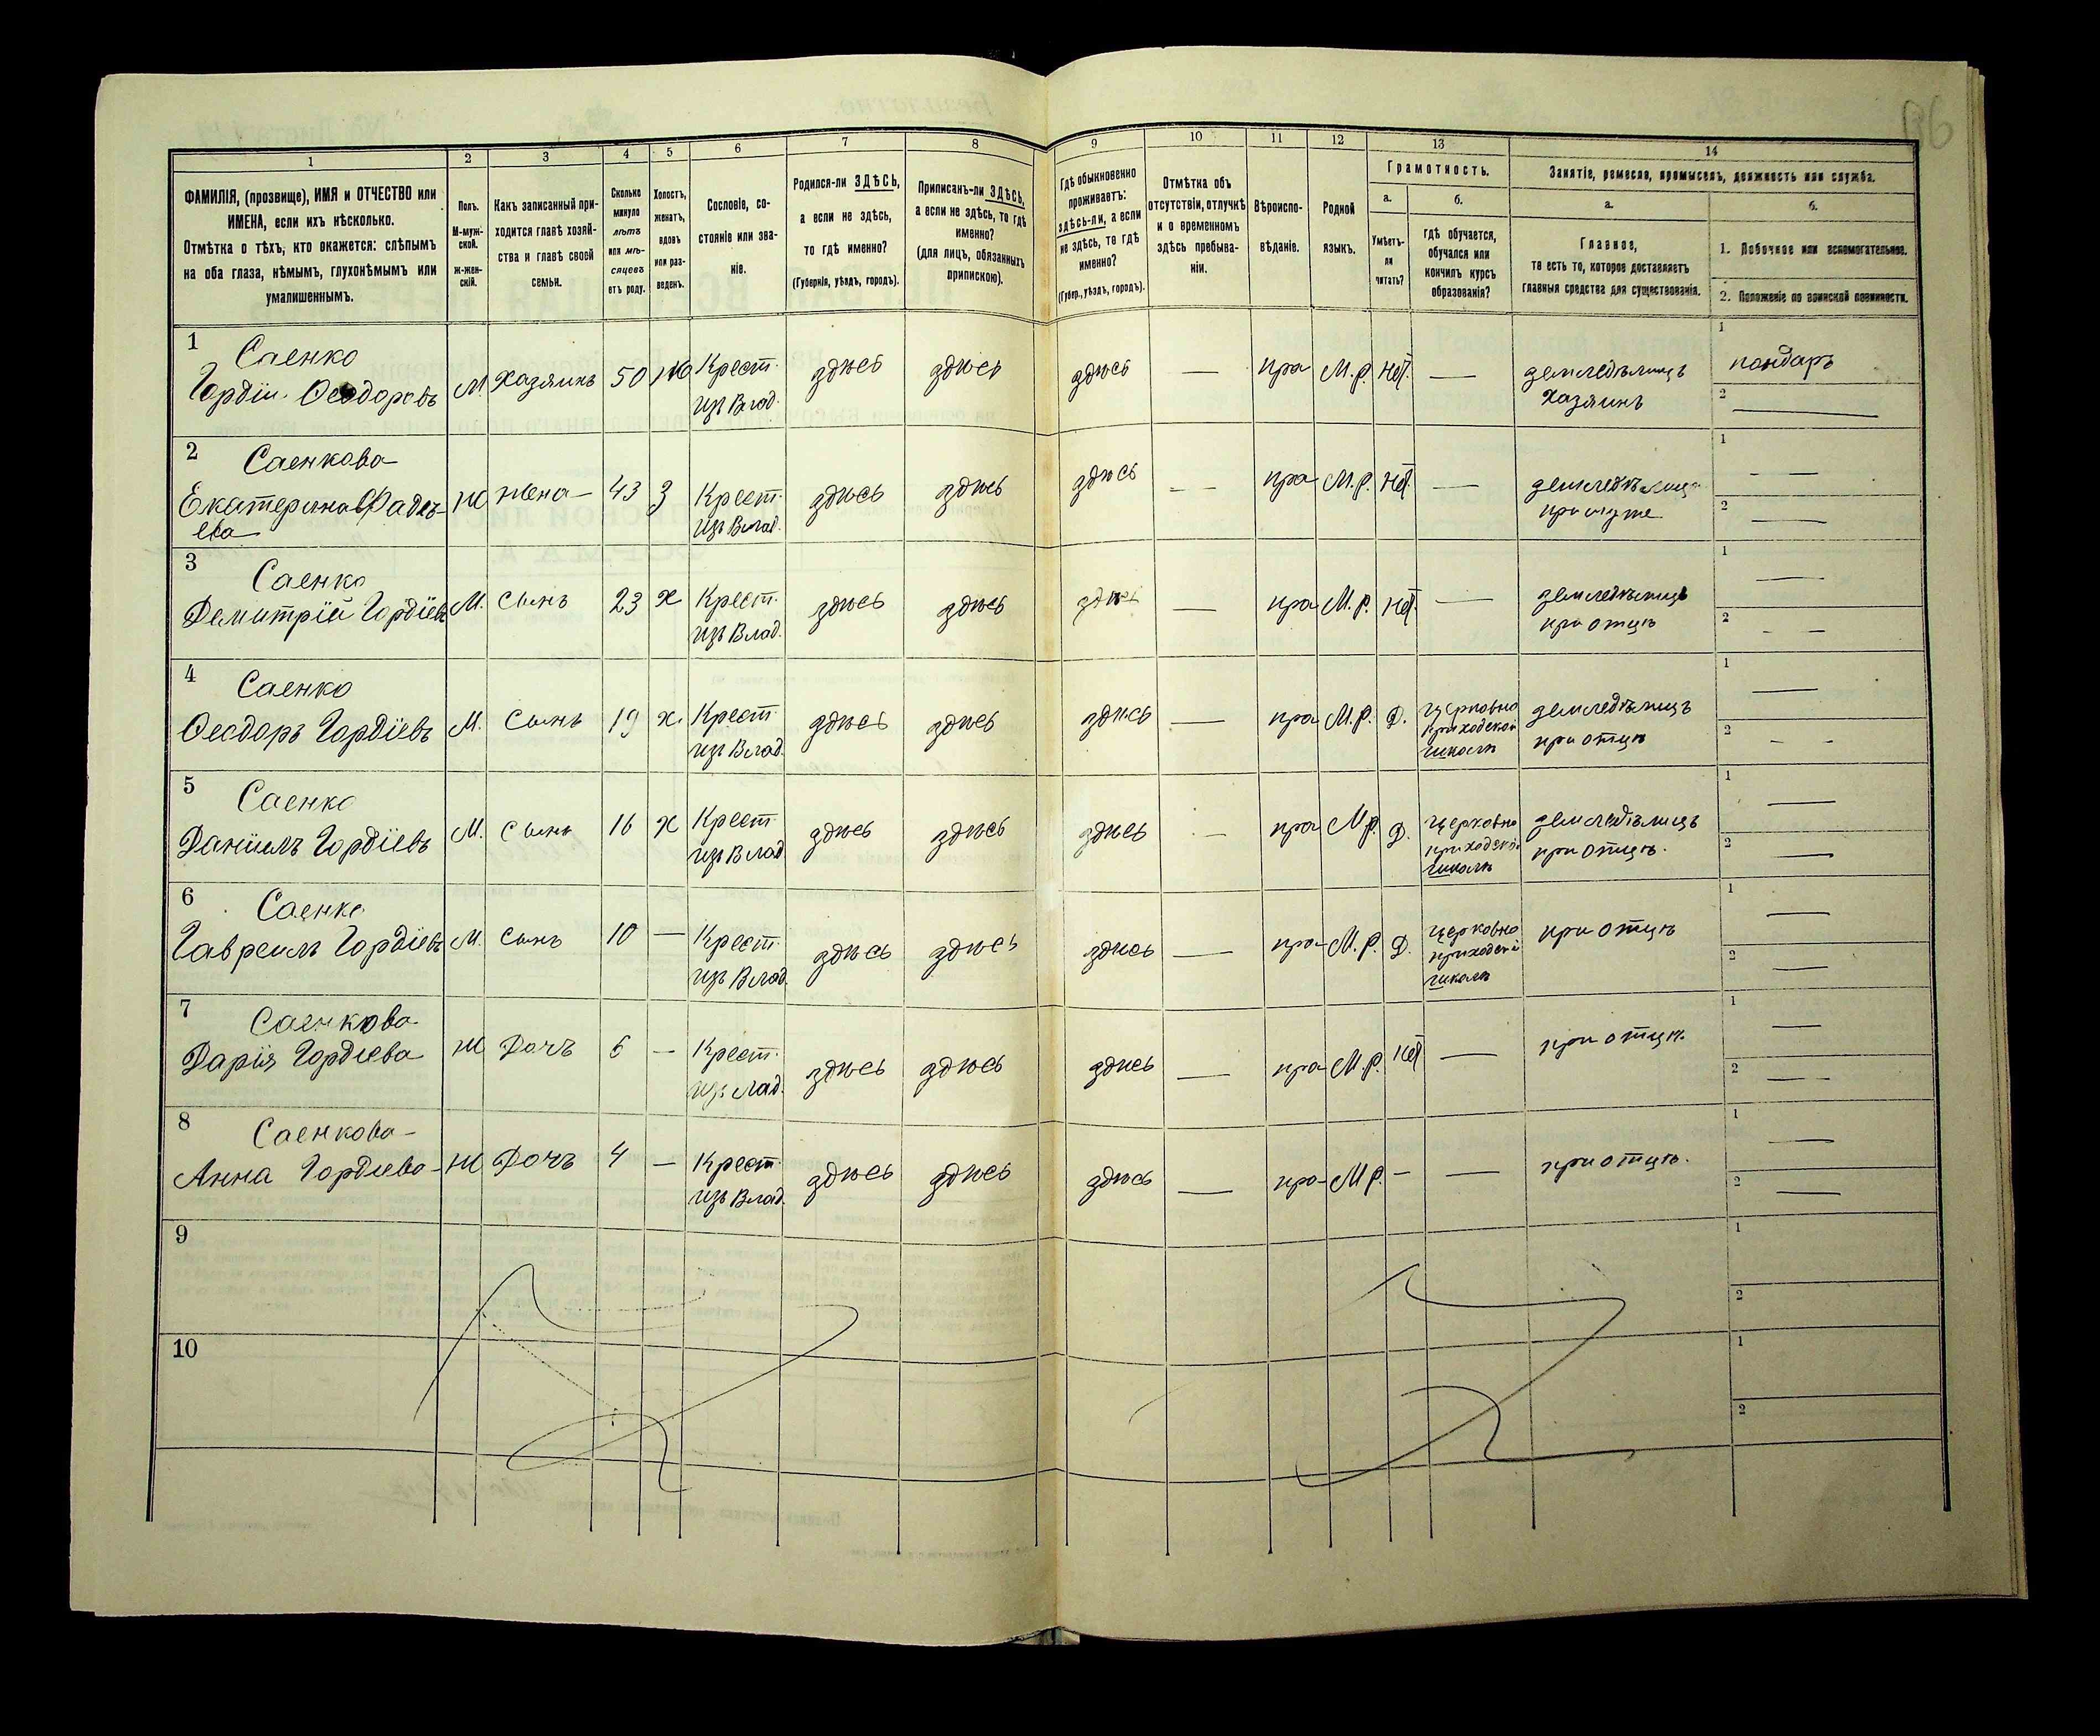 96
1 2 3 4 5 6 7 8 9 10 11 12 13 14
ФАМИЛІЯ, (прозвище), ИМЯ и ОТЧЕСТВО или
ИМЕНА, если ихъ нѣсколько.
Отмѣтка о тѣхъ, кто окажется: слѣпымъ
на оба глаза, нѣмымъ, глухонѣмымъ или
умалишеннымъ.
Полъ.
М-муж-
ской.
Ж-жен-
скій.
Какъ записанный при-
ходится главѣ хозяй-
ства и главѣ своей
семьи.
Сколько
минуло
лѣтъ
или мѣ-
сяцевъ
отъ роду.
Холостъ,
женатъ,
вдовъ
или раз-
веденъ.
Сословіе, со-
стояніе или зва-
ніе.
Родился-ли ЗДѢСЬ,
а если не здѣсь,
то гдѣ именно?
(Губернія, уѣздъ, городъ).
Приписанъ-ли ЗДѢСЬ,
а если не здѣсь, то гдѣ
именно?
(для лицъ, обязанныхъ
припискою).
Гдѣ обыкновенно
проживаетъ:
здѣсь-ли, а если
не здѣсь, то гдѣ
именно?
(Губер., уѣздъ, городъ).
Отмѣтка объ
отсутствіи, отлучкѣ
и о временномъ
здѣсь пребыва-
ніи.
Вѣроиспо-
вѣданіе.
Родной
языкъ.
Грамотность.
а.
Умѣетъ-
ли
читать?
б.
гдѣ обучается,
обучался или
кончилъ курсъ
образованія?
Занятіе, ремесло, промыселъ, должность или служба.
а.
Главное,
то есть то, которое доставляетъ
главныя средства для существованія.
б.
1. Побочное или вспомогательное.
2. Положеніе по воинской повинности.
1 Саенко
Гордій Ѳеодоровъ М. Хазяинъ 50 ж Крест. изъ Влад. здѣсь здѣсь здѣсь — пра М.р. нѣт. — земледѣлицъ хазяинъ 1 пондаръ 2 —
2 Саенкова
Екатерина Фадѣ-
ева Ж жена 43 З Крест. изъ Влад. здѣсь здѣсь здѣсь — пра М.р. нѣт. — земледѣлица при муже 1 — 2 —
3 Саенко
Демитрій Гордіевъ М. Сынъ 23 х Крест. изъ Влад. здѣсь здѣсь здѣсь — пра М.р. нѣт. — земледѣлицъ при отцѣ 1 — 2 —
4 Саенко
Ѳеодоръ Гордіевъ М. Сынъ 19 х. Крест. изъ Влад. здѣсь здѣсь здѣсь — пра М.р. Д. церковно приходской школѣ земледѣлицъ при отцѣ 1 — 2 —
5 Саенко
Даніилъ Гордіевъ М. Сынъ 16 х Крест. изъ Влад. здѣсь здѣсь здѣсь — пра М.р. Д. церковно приходской школѣ земледѣлицъ при отцѣ. 1 — 2 —
6 Саенко
Гавреилъ Гордіевъ М. Сынъ 10 — Крест. изъ Влад. здѣсь здѣсь здѣсь — пра М.р. Д. церковно приходской школѣ при отцѣ 1 — 2 —
7 Саенкова
Дарія Гордіева Ж Дочъ 6 — Крест. изъ Влад. здѣсь здѣсь здѣсь — пра М.р. нѣт — при отцѣ. 1 — 2 —
8 Саенкова
Анна Гордіева Ж Дочъ 4 — Крест. изъ Влад. здѣсь здѣсь здѣсь — пра М.р. — — при отцѣ. 1 — 2 —
9 1 2
10 1 2